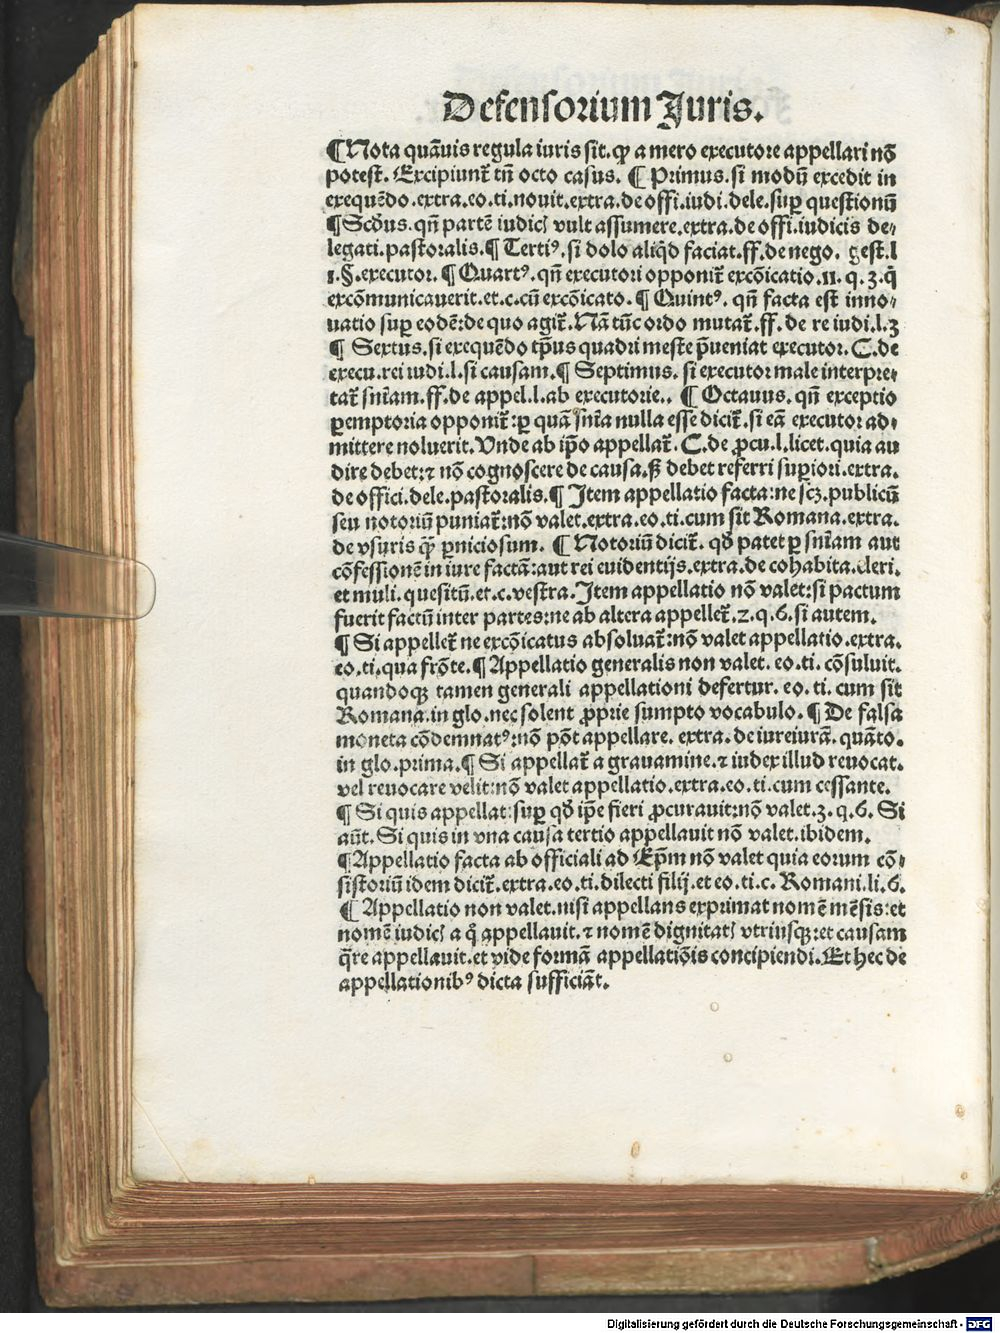 Defensorium Juris.
¶ Nota quãuis regula iuris sit. ꝙ a mero executore appellari nõ
potest. Excipiunt̃ tñ octo casus. ¶ Primus. si modũ excedit in
exequẽdo. extra. eo. ti. nouit. extra. de offi. iudi. dele. suꝑ questionũ
¶ Scðus. qñ partẽ iudicꝭ vult assumere. extra. de offi. iudicis de⸗
legati. pastoralis. ¶ Tertiꝰ. si dolo aliqd̃ faciat. ff. de nego. gest. l
1. §. executor. ¶ Quartꝰ. qñ executori opponit̃ excõicatio. 11. q. 3. q̃
excõmunicauerit. et. c. cũ excõicato. ¶ Quintꝰ. qñ facta est inno⸗
uatio suꝑ eodẽ: de quo agit̃. Nã tũc ordo mutat̃. ff. de re iudi. l. 3
¶ Sextus. si exequẽdo tp̃us quadrimestre p̃ueniat executor. C. de
execu. rei iudi. l. si causam. ¶ Septimus. si executor male interpre⸗
tat̃ sn̄iam. ff. de appel. l. ab executorie.. ¶ Octauus. qñ exceptio
ꝑemptoria opponit̃: ꝑ quã sn̄ia nulla esse dicit̃. si eã executor ad⸗
mittere noluerit. Vnde ab ip̃o appellat̃. C. de ꝓcu. l. licet. quia au
dire debet: ⁊ nõ cognoscere de causa. ſꝫ debet referri suꝑiori. extra.
de offici. dele. pastoralis. ¶ Item appellatio facta: ne scꝫ. publicũ
seu notoriũ puniat̃: nõ valet. extra. eo. ti. cum sit Romana. extra.
de vsuris q̃ꝫ ꝑniciosum. ¶ Notoriũ dicit̃. qð patet ꝑ sn̄iam aut
cõfessionẽ in iure factã: aut rei euidentijs. extra. de cohabita. cleri.
et muli. quesitũ. et. c. vestra. Item appellatio nõ valet: si pactum
fuerit factũ inter partes: ne ab altera appellet̃. 2. q. 6. si autem.
¶ Si appellet̃ ne excõicatus absoluat̃: nõ valet appellatio. extra.
eo. ti. qua frõte. ¶ Appellatio generalis non valet. eo. ti. cõsuluit.
quandoqꝫ tamen generali appellationi defertur. eo. ti. cum sit
Romana. in glo. nec solent ꝓprie sumpto vocabulo. ¶ De falsa
moneta cõdemnatꝰ: nõ põt appellare. extra. de iureiurã. quãto.
in glo. prima. ¶ Si appellat̃ a grauamine. ⁊ iudex illud reuocat.
vel reuocare velit: nõ valet appellatio. extra. eo. ti. cum cessante.
¶ Si quis appellat: suꝑ qð ip̃e fieri ꝓcurauit: nõ valet. 3. q. 6. Si
aũt. Si quis in vna causa tertio appellauit nõ valet. ibidem.
¶ Appellatio facta ab officiali ad Ep̃m nõ valet quia eorum cõ⸗
sistoriũ idem dicit̃. extra. eo. ti. dilecti filij. et eo. ti. c. Romani. li. 6.
¶ Appellatio non valet. nisi appellans exprimat nomẽ mẽsis: et
nomẽ iudicꝭ a q̊ appellauit. ⁊ nomẽ dignitatꝭ vtriusqꝫ: et causam
q̃re appellauit. et vide formã appellatiõis concipiendi. Et hec de
appellationibꝰ dicta sufficiãt.
Digitalisierung gefördert durch die Deutsche Forschungsgemeinschaft - DFG